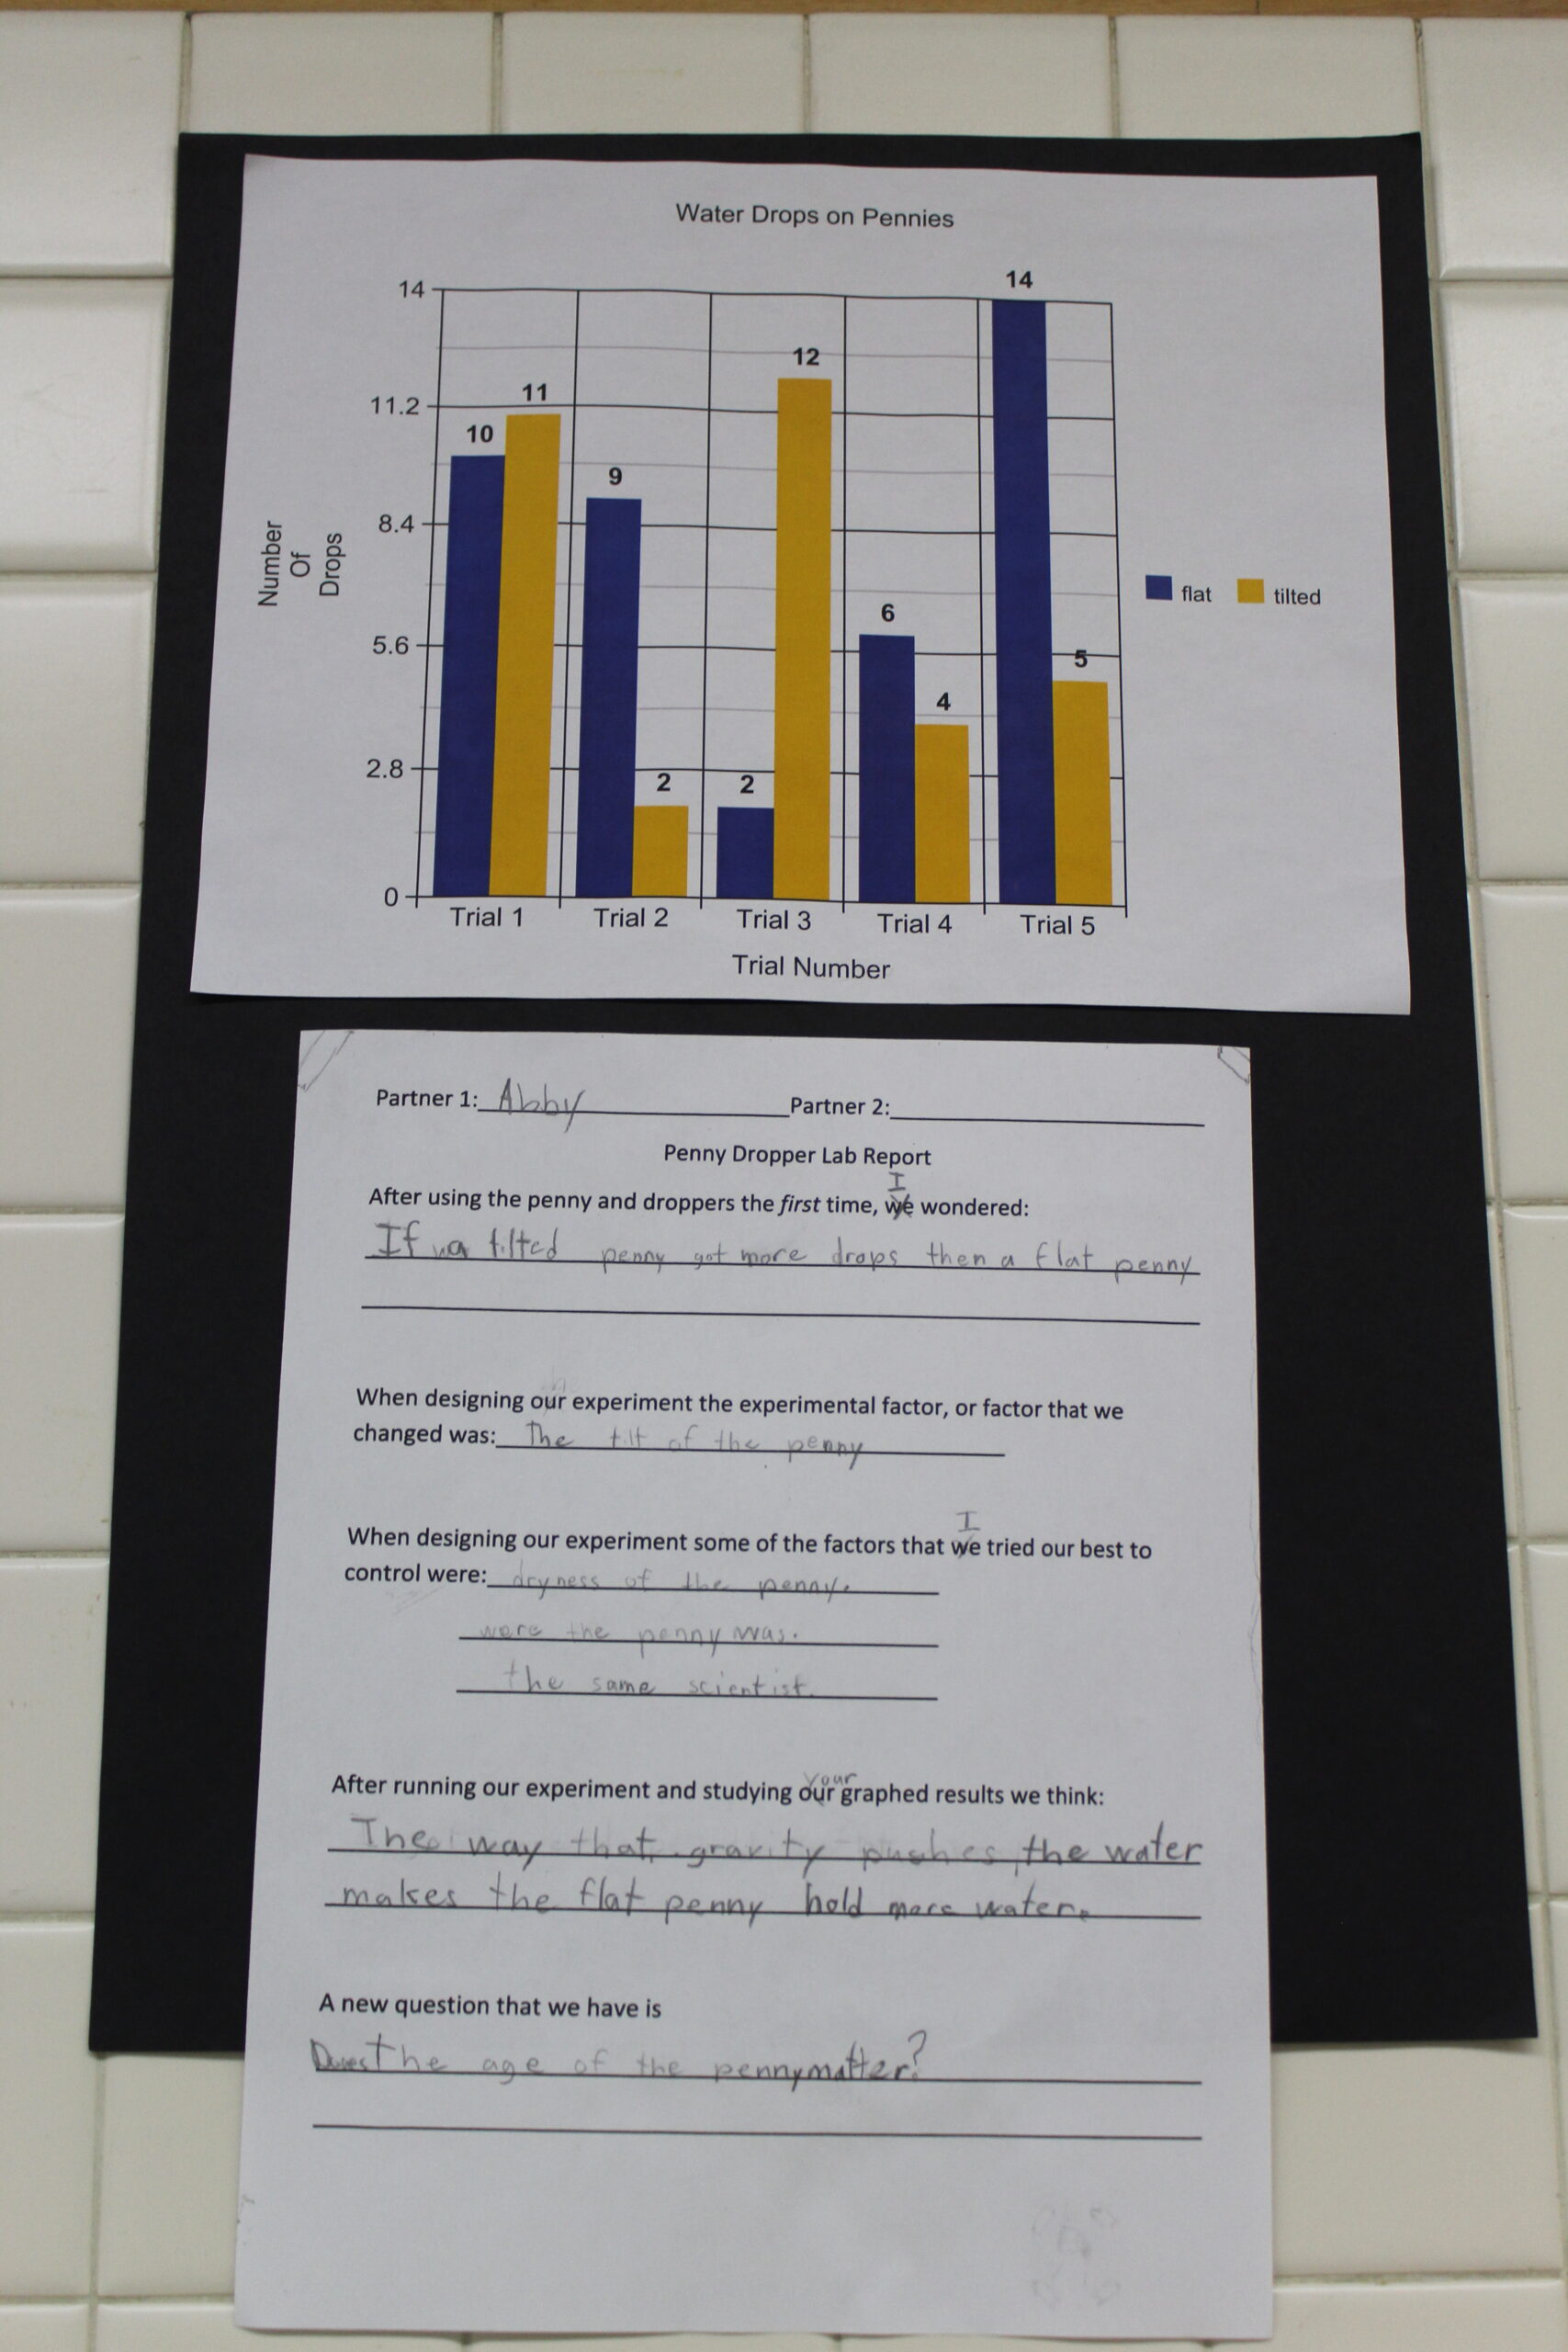 Water Drops on Pennies
14
11.2
8.4
5.6
2.8
0
Number
Of
Drops
10
11
9
2
2
12
6
4
14
5
flat
tilted
Trial 1
Trial 2
Trial 3
Trial 4
Trial 5
Trial Number
Partner 1: Abby Partner 2:
Penny Dropper Lab Report
I
After using the penny and droppers the first time, we wondered:
If a tilted penny got more drops then a flat penny
When designing our experiment the experimental factor, or factor that we
changed was: The tilt of the penny
I
When designing our experiment some of the factors that we tried our best to
control were: dryness of the penny.
were the penny was.
the same scientist.
your
After running our experiment and studying our graphed results we think:
The way that gravity pushes the water
makes the flat penny hold more water.
A new question that we have is
Does the age of the penny matter?